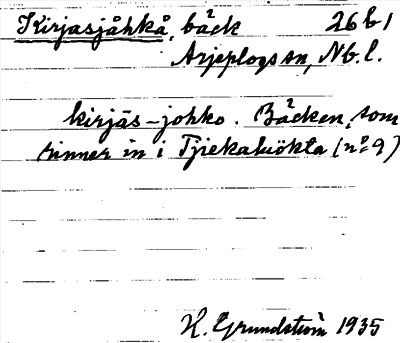 Kirjasjåhkå, bäck 26b1
Arjeplogs sn, Nb.l.
kirjās-johko. Bäcken, som
rinner in i Tjiekaluokta (nº 9)
H. Grundström 1935